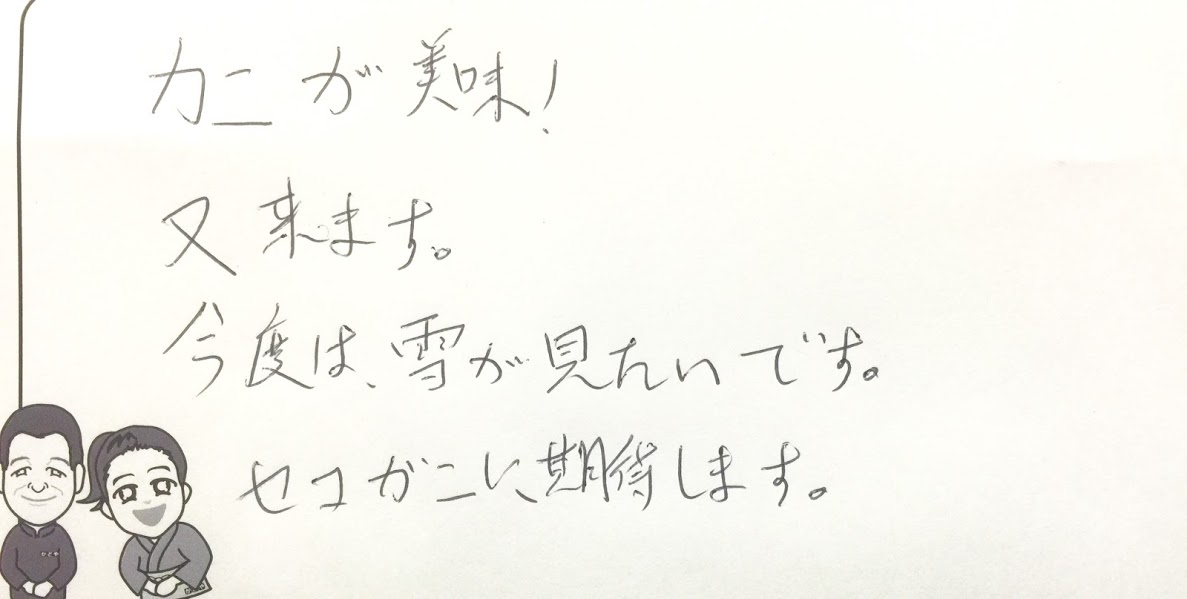 カニが美味！
又来ます。
今度は、雪が見たいです。
セコガニに、期待します。